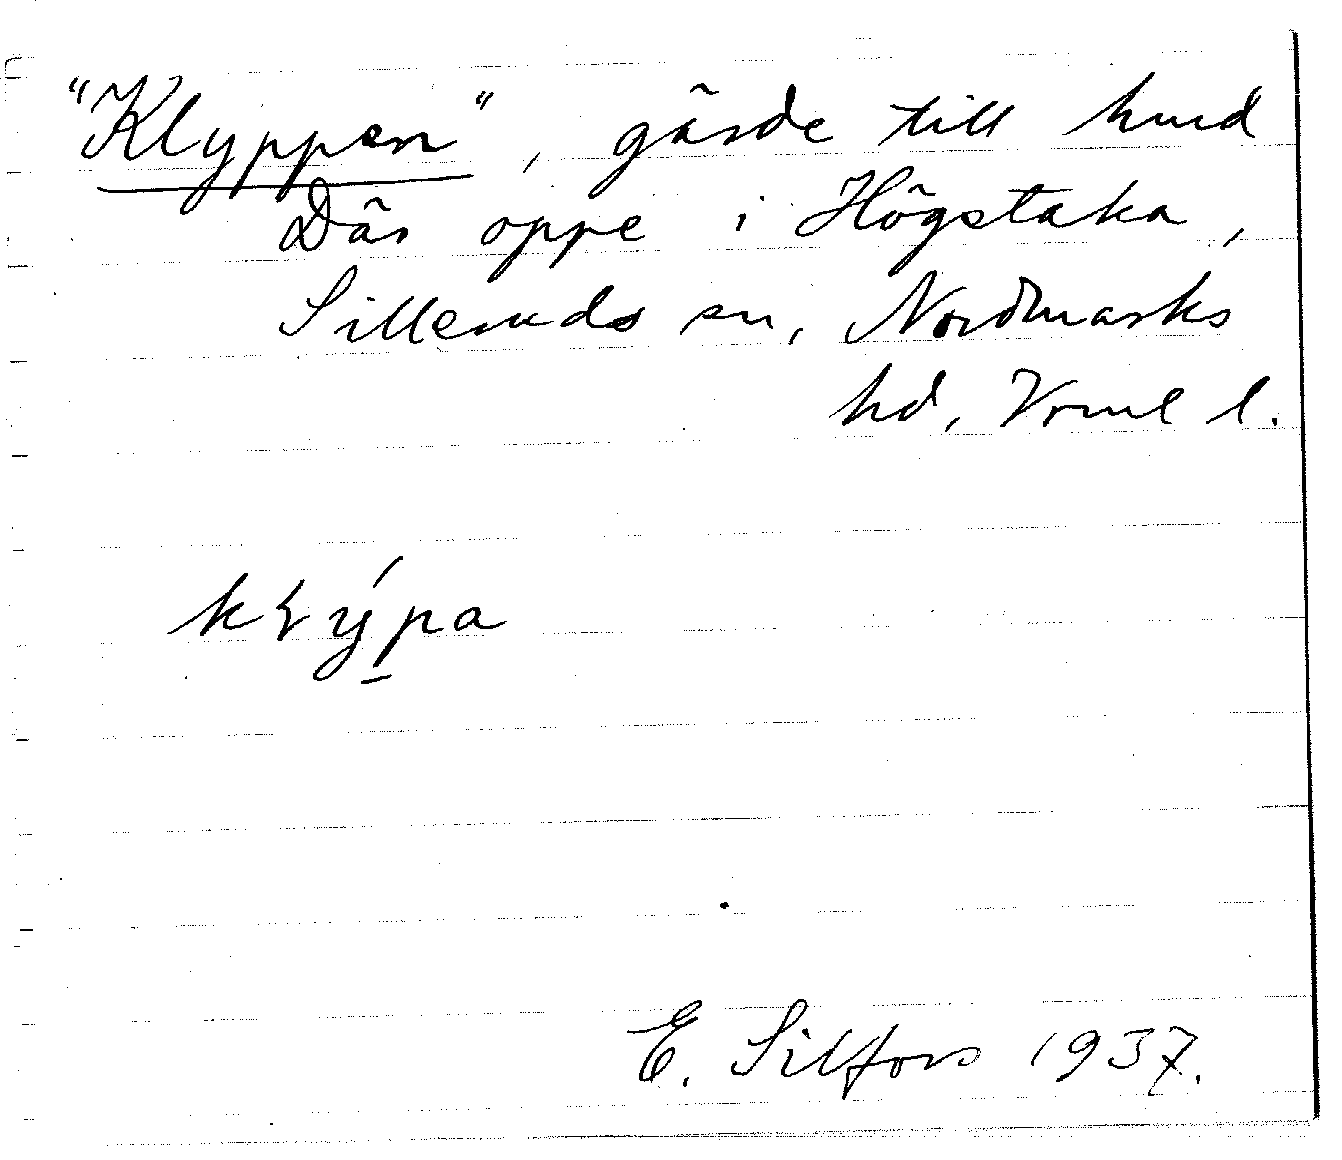 "Klyppen", gärde till hmd
Där oppe i Högstaka,
Silleruds sn, Nordmarks
hd, Vrml l.
E. Silfors 1937.